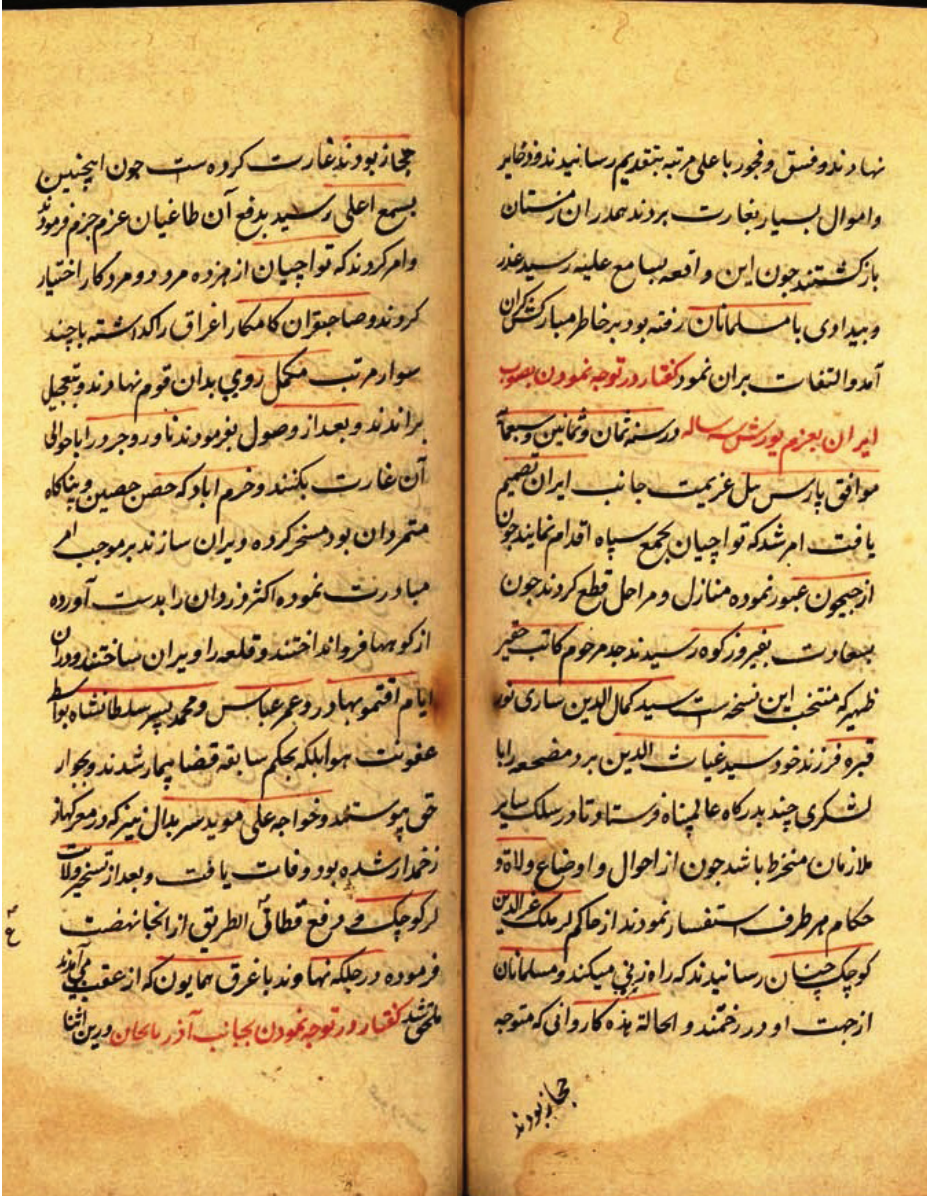 نهادند و فسق و فجور با علی مرتبه بتقدیم رسانیدند و ذخایر
و اموال بسیار بغارت بردند همدران زمستان
بازکشتند جون این واقعه بسامع علیه رسید عذر
و بیدادی با مسلمانان رفته بود بر خاطر مبارکش کران
آمد و التفات بران نمود کفتار در توجه نمودن بصوب
ایران بعزم یورش سه ساله در سنه ثمان و ثمانین و سبعمائه
موافق پارس ئیل عزیمت جانب ایران تصمیم
یافت امر شد که تواچیان بجمع سپاه اقدام نمایند جون
از جیحون عبور نموده منازل و مراحل قطع کردند جون
بسعادت بفیروزکوه رسیدند جد مرحوم کاتب حقیر
ظهیر که منتخب این نسخه است سید کمال الدین ساری نور
قبره فرزند خود سید غیاث الدین برد مضجعه را با
لشکری چند بدرکاه عالمپناه فرستاد تا در سلک سایر
ملازمان منخرط باشد جون از احوال و اوضاع ولاة و
حکام هر طرف استفسار نمودند از حاکم لر ملک عزالدین
کوچک چنان رسانیدند که راه زنی میکند و مسلمانان
از جهت او در زحمتند و الحالة هذه کاروانی که متوجه
حجاز بودند
حجاز بودند غارت کرده ست جون اینچنین
بسمع اعلی رسید بدفع آن طاغیان عزم جزم فرمودند
و امر کردند که تواچیان از هر ده مرد دو مرد کار اختیار
کردند و صاحبقران کامکار اغراق را کداشته با چند
سوار مرتب مکمل روی بدان قوم نهادند و بتعجیل
براندند و بعد از وصول بفرمودند تا وروجرد را با حوالی
آن غارت بکنند و خرم اباد که حصن حصین و پناکاه
متمردان بود مسخر کرده ویران سازند بر موجب امر
مبادرت نموده اکثر دزدان را بدست آورده
از کوهها فرو انداختند و قلعه را ویران ساختند و دران
ایام اقتمور بهادر و عمر عباس و محمد پسر سلطانشاه بواسطه
عفونت هوا بلکه بحکم سابقه قضا بیمار شدند و بجوار
حق پیوستند و خواجه علی موید سربدال نیز که در معرکه
زخمدار شده بود وفات یافت و بعد از تسخیر ولایت
لر کوچک و رفع قطاع الطریق از انجا نهضت
فرموده در جلکه نهاوند با غرق همایون که از عقب می آمدند
ملحق شد کفتار در توجه نمودن بجانب آذربایجان درین اثنا